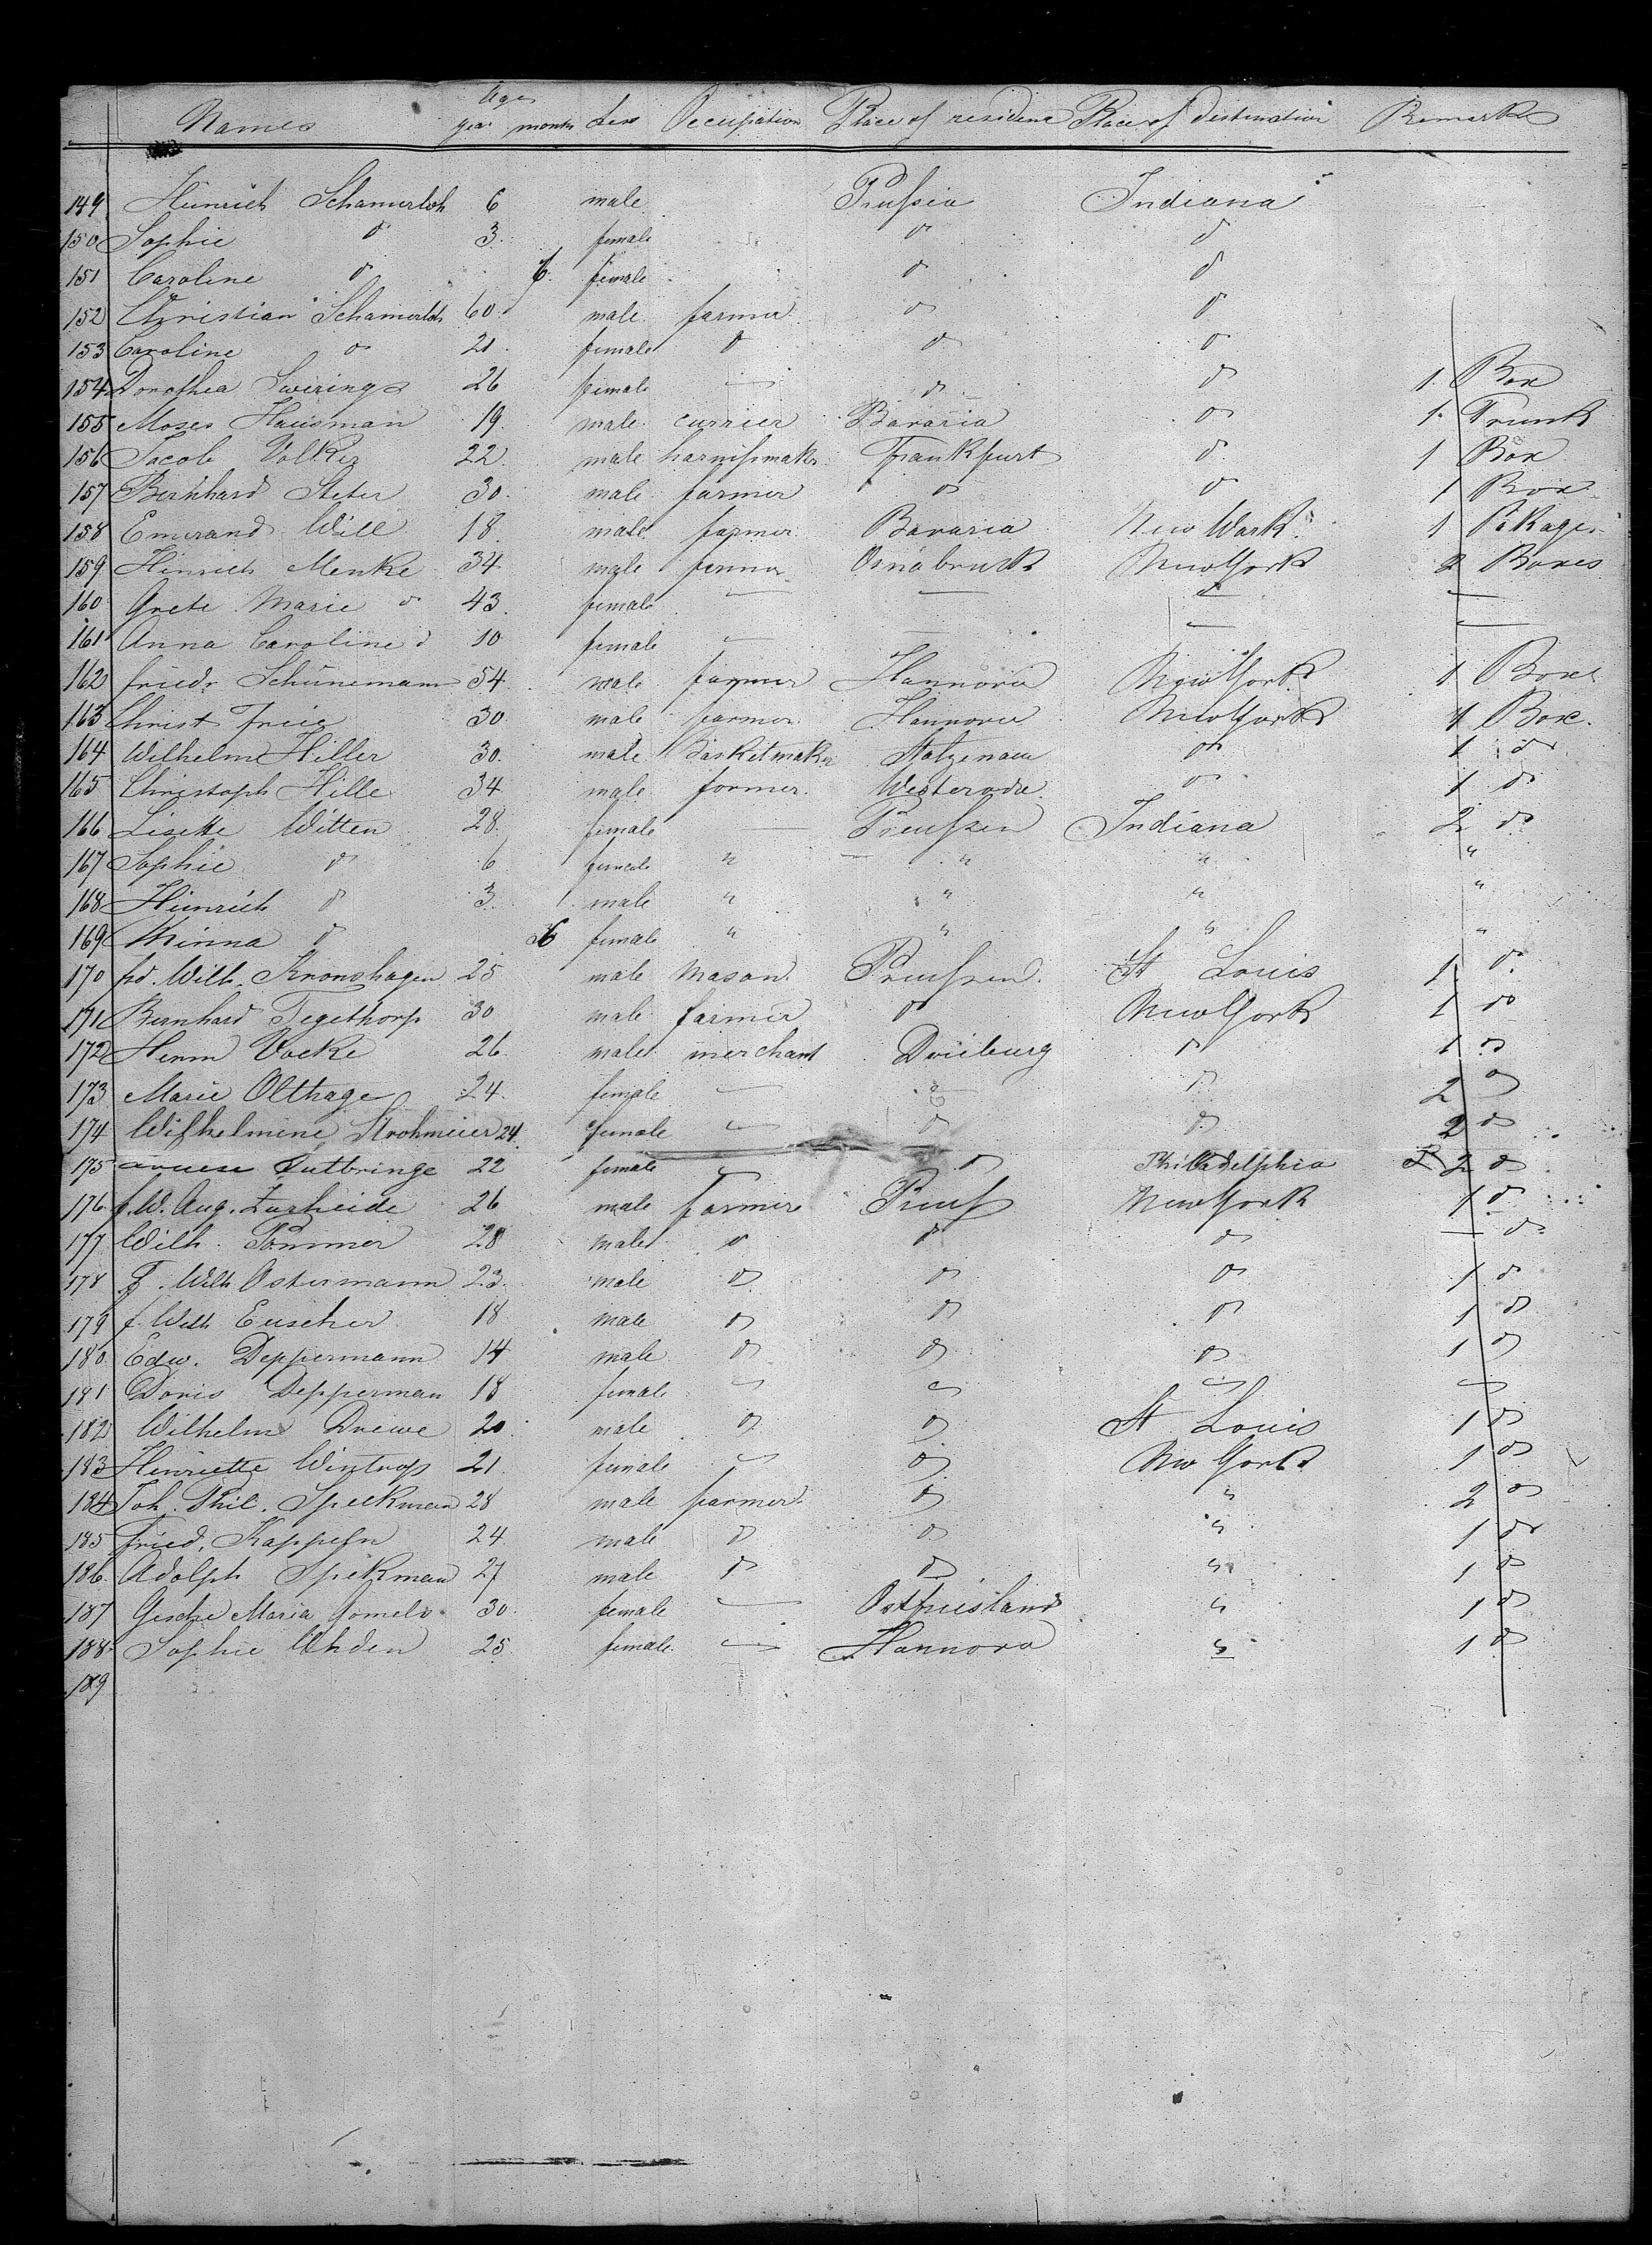 Names Age year month Sex Occupation Place of residence Place of destination Remarks
149 Heinrich Schamerloh 6 male Prussia Indiana
150 Sophie do 3 female do do
151 Caroline do 6 female do do
152 Christian Schamerloh 60 male farmer do do
153 Caroline do 21 female do do do
154 Dorothea Swirings 26 female — do do 1 Box
155 Moses Hausman 19 male currier Bavaria do 1 Trunk
156 Jacob Volker 22 male harnissmaker Frankfurt do 1 Box
157 Bernhard Steter 30 male farmer do do 1 Box
158 Emerand Will 18 male farmer Bavaria New Wark 1 Pakage
159 Hinrich Menke 34 male farmer Osnabruck New York 2 Boxes
160 Grete Marie do 43 female — — — —
161 Anna Caroline do 10 female — — — —
162 friedr Schünemann 54 male farmer Hannover New York 1 Boxe
163 Christ Freie 30 male farmer Hannover New York 1 Boxe
164 Wilhelm Hiller 30 male Basketmaker Stolzenau do 1 do
165 Christoph Hille 34 male farmer Westerode do 1 do
166 Lisette Witten 28 female — Preussen Indiana 2 do
167 Sophie do 6 female " " " "
168 Hinrich do 3 male " " " "
169 Minna do 6 female " " " "
170 frd. Wilh. Kronshagen 25 male mason Preussen St Louis 1 do
171 Bernhard Tegethorp 30 male farmer do New York 1 do
172 Herm Vocke 26 male merchant Driburg do 1 do
173 Marie Olthage 24 female — do do 2 do
174 Wilhelmine Strohmeier 24 female — do do 2 do
175 Outbringe 22 female — do Philladelphia 2 do
176 f. W. Aug. Zurheide 26 male Farmer Preuss New York 1 do
177 Wilh. Pömmer 28 male do do do — do
178 F. Wilh Ostermann 23 male do do do 1 do
179 f Wilh Euscher 18 male do do do 1 do
180 Edw. Deppermann 14 male do do do 1 do
181 Doris Depperman 18 female — — — —
182 Wilhelm Drewe 20 male do do St Louis 1 do
183 Henriette Wintrop 21 female — do New York 1 do
184 Joh. Phil. Speckman 28 male farmer do " 2 do
185 Fried. Kappeln 24 male do do " 1 do
186 Adolph Spekman 27 male do do " 1 do
187 Gesche Maria Gomels 30 female — Ostfriesland " 1 do
188 Sophie Uhden 25 female — Hannover " 1 do
189